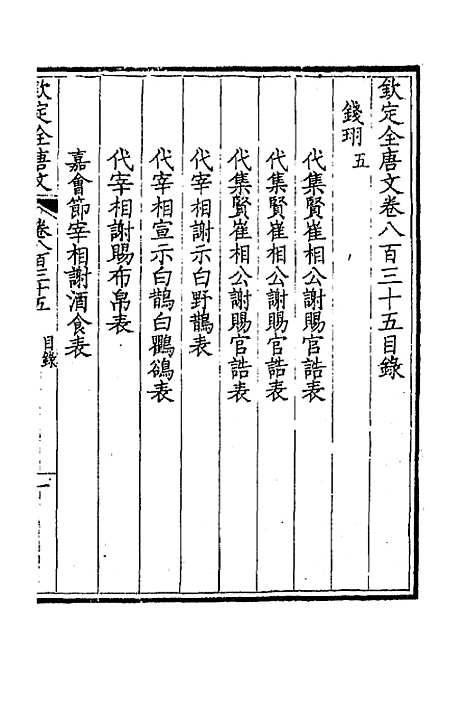 欽定全唐文卷八百三十五目錄
錢珝五
代集賢崔相公謝賜官誥表
代集賢崔相公謝賜官誥表
代集賢崔相公謝賜官誥表
代宰相謝示白野鵲表
代宰相宣示白鵲白鸜鵒表
代宰相謝賜布帛表
嘉會節宰相謝酒食表
欽定全唐文 卷八百三十五 目錄 一